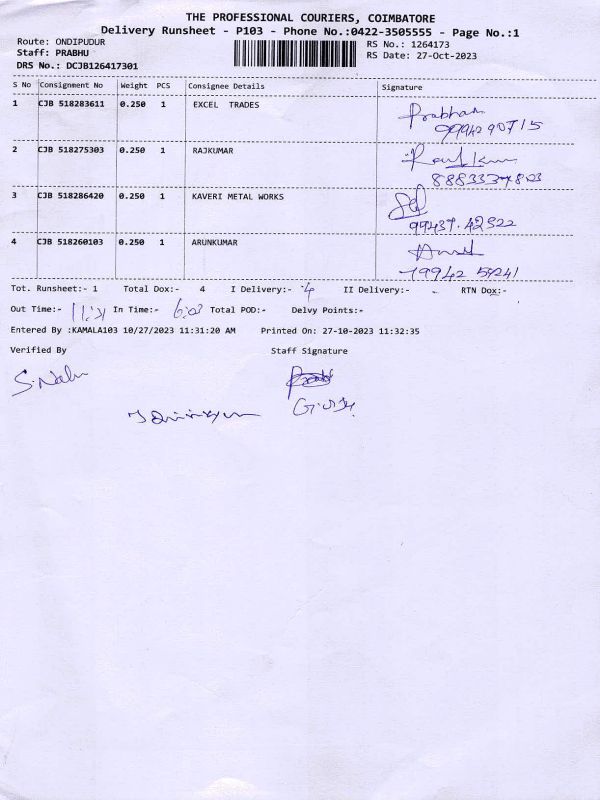 THE PROFESSIONAL COURIERS, COIMBATORE
Delivery Runsheet - P103 - Phone No.:0422-3505555 - Page No.:1
Route: ONDIPUDUR RS No.: 1264173
Staff: PRABHU RS Date: 27-Oct-2023
DRS No.: DCJB126417301
S No Consignment No Weight PCS Consignee Details Signature
1 CJB 518283611 0.250 1 EXCEL TRADES Prabhan
2 CJB 518275303 0.250 1 RAJKUMAR
3 CJB 518286420 0.250 1 KAVERI METAL WORKS
99437.42322
4 CJB 518260103 0.250 1 ARUNKUMAR
Tot. Runsheet:- 1 Total Dox:- 4 I Delivery:- 4 II Delivery:- RTN Dox:-
Out Time:- 11:31 In Time:- 6:03 Total POD:- Delvy Points:-
Entered By :KAMALA103 10/27/2023 11:31:20 AM Printed On: 27-10-2023 11:32:35
Verified By Staff Signature